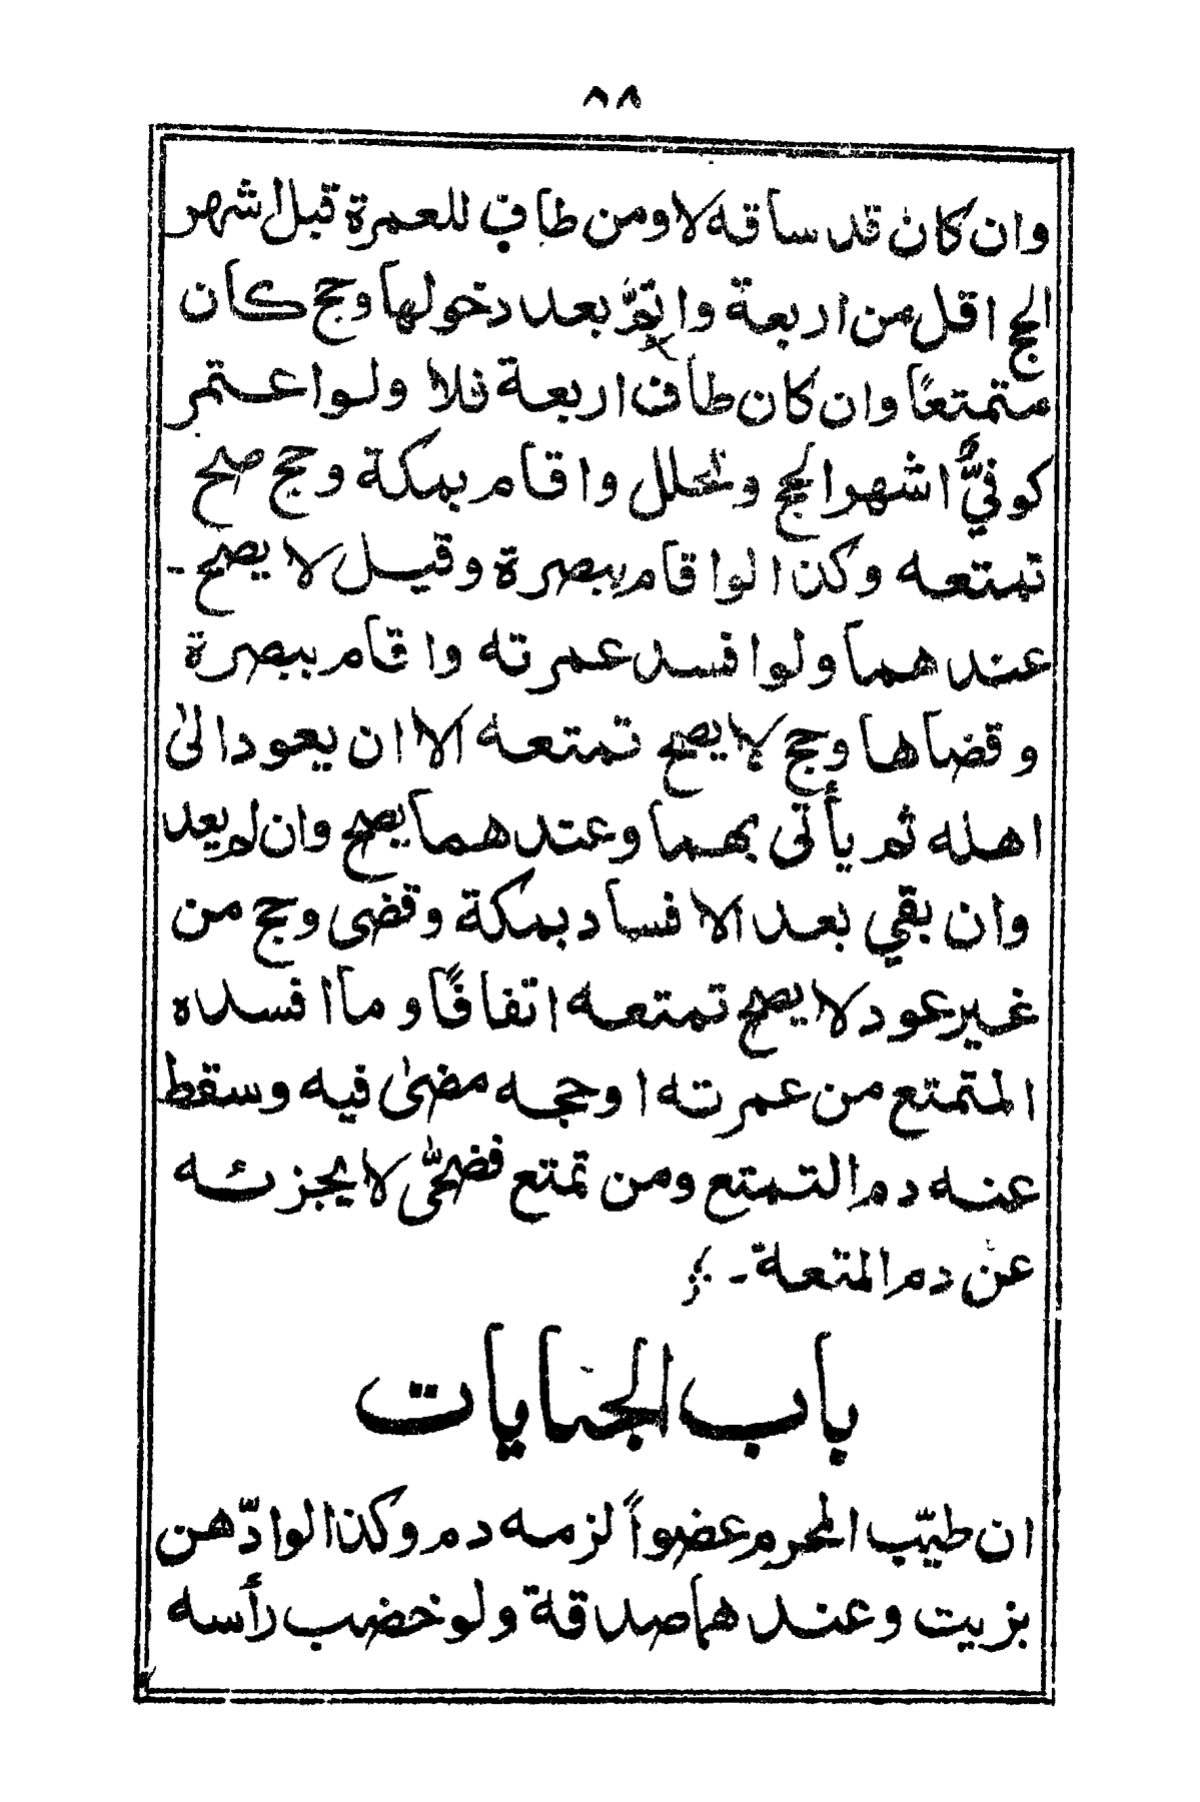 ٨٨
وان كان قد ساقه لا ومن طاف للعمرة قبل اشهر
الحج اقل من اربعة واتمَّ بعد دخولها وحج كان
متمتعًا وان كان طاف اربعة فلا ولو اعتمر
كوفيٌّ اشهر الحج وتحلل واقام بمكة وحج صح
تمتعه وكذا لو اقام ببصرة وقيل لا يصح -
عندهما ولو افسد عمرته واقام ببصرة
وقضاها وحج لا يصح تمتعه الا ان يعود الىٰ
اهله ثم يأتى بهما وعندهما يصح وان لم يعد
وان بقي بعد الافساد بمكة وقضى وحج من
غير عود لا يصح تمتعه اتفاقًا وما افسده
المتمتع من عمرته او حجه مضىٰ فيه وسقط
عنه دم التمتع ومن تمتع فضحّٰى لا يجزئه
عن دم المتعة -
باب الجنايات
ان طيّب المحرم عضواً لزمه دم وكذا لو ادّهن
بزيت وعندهما صدقة ولو خضب رأسه